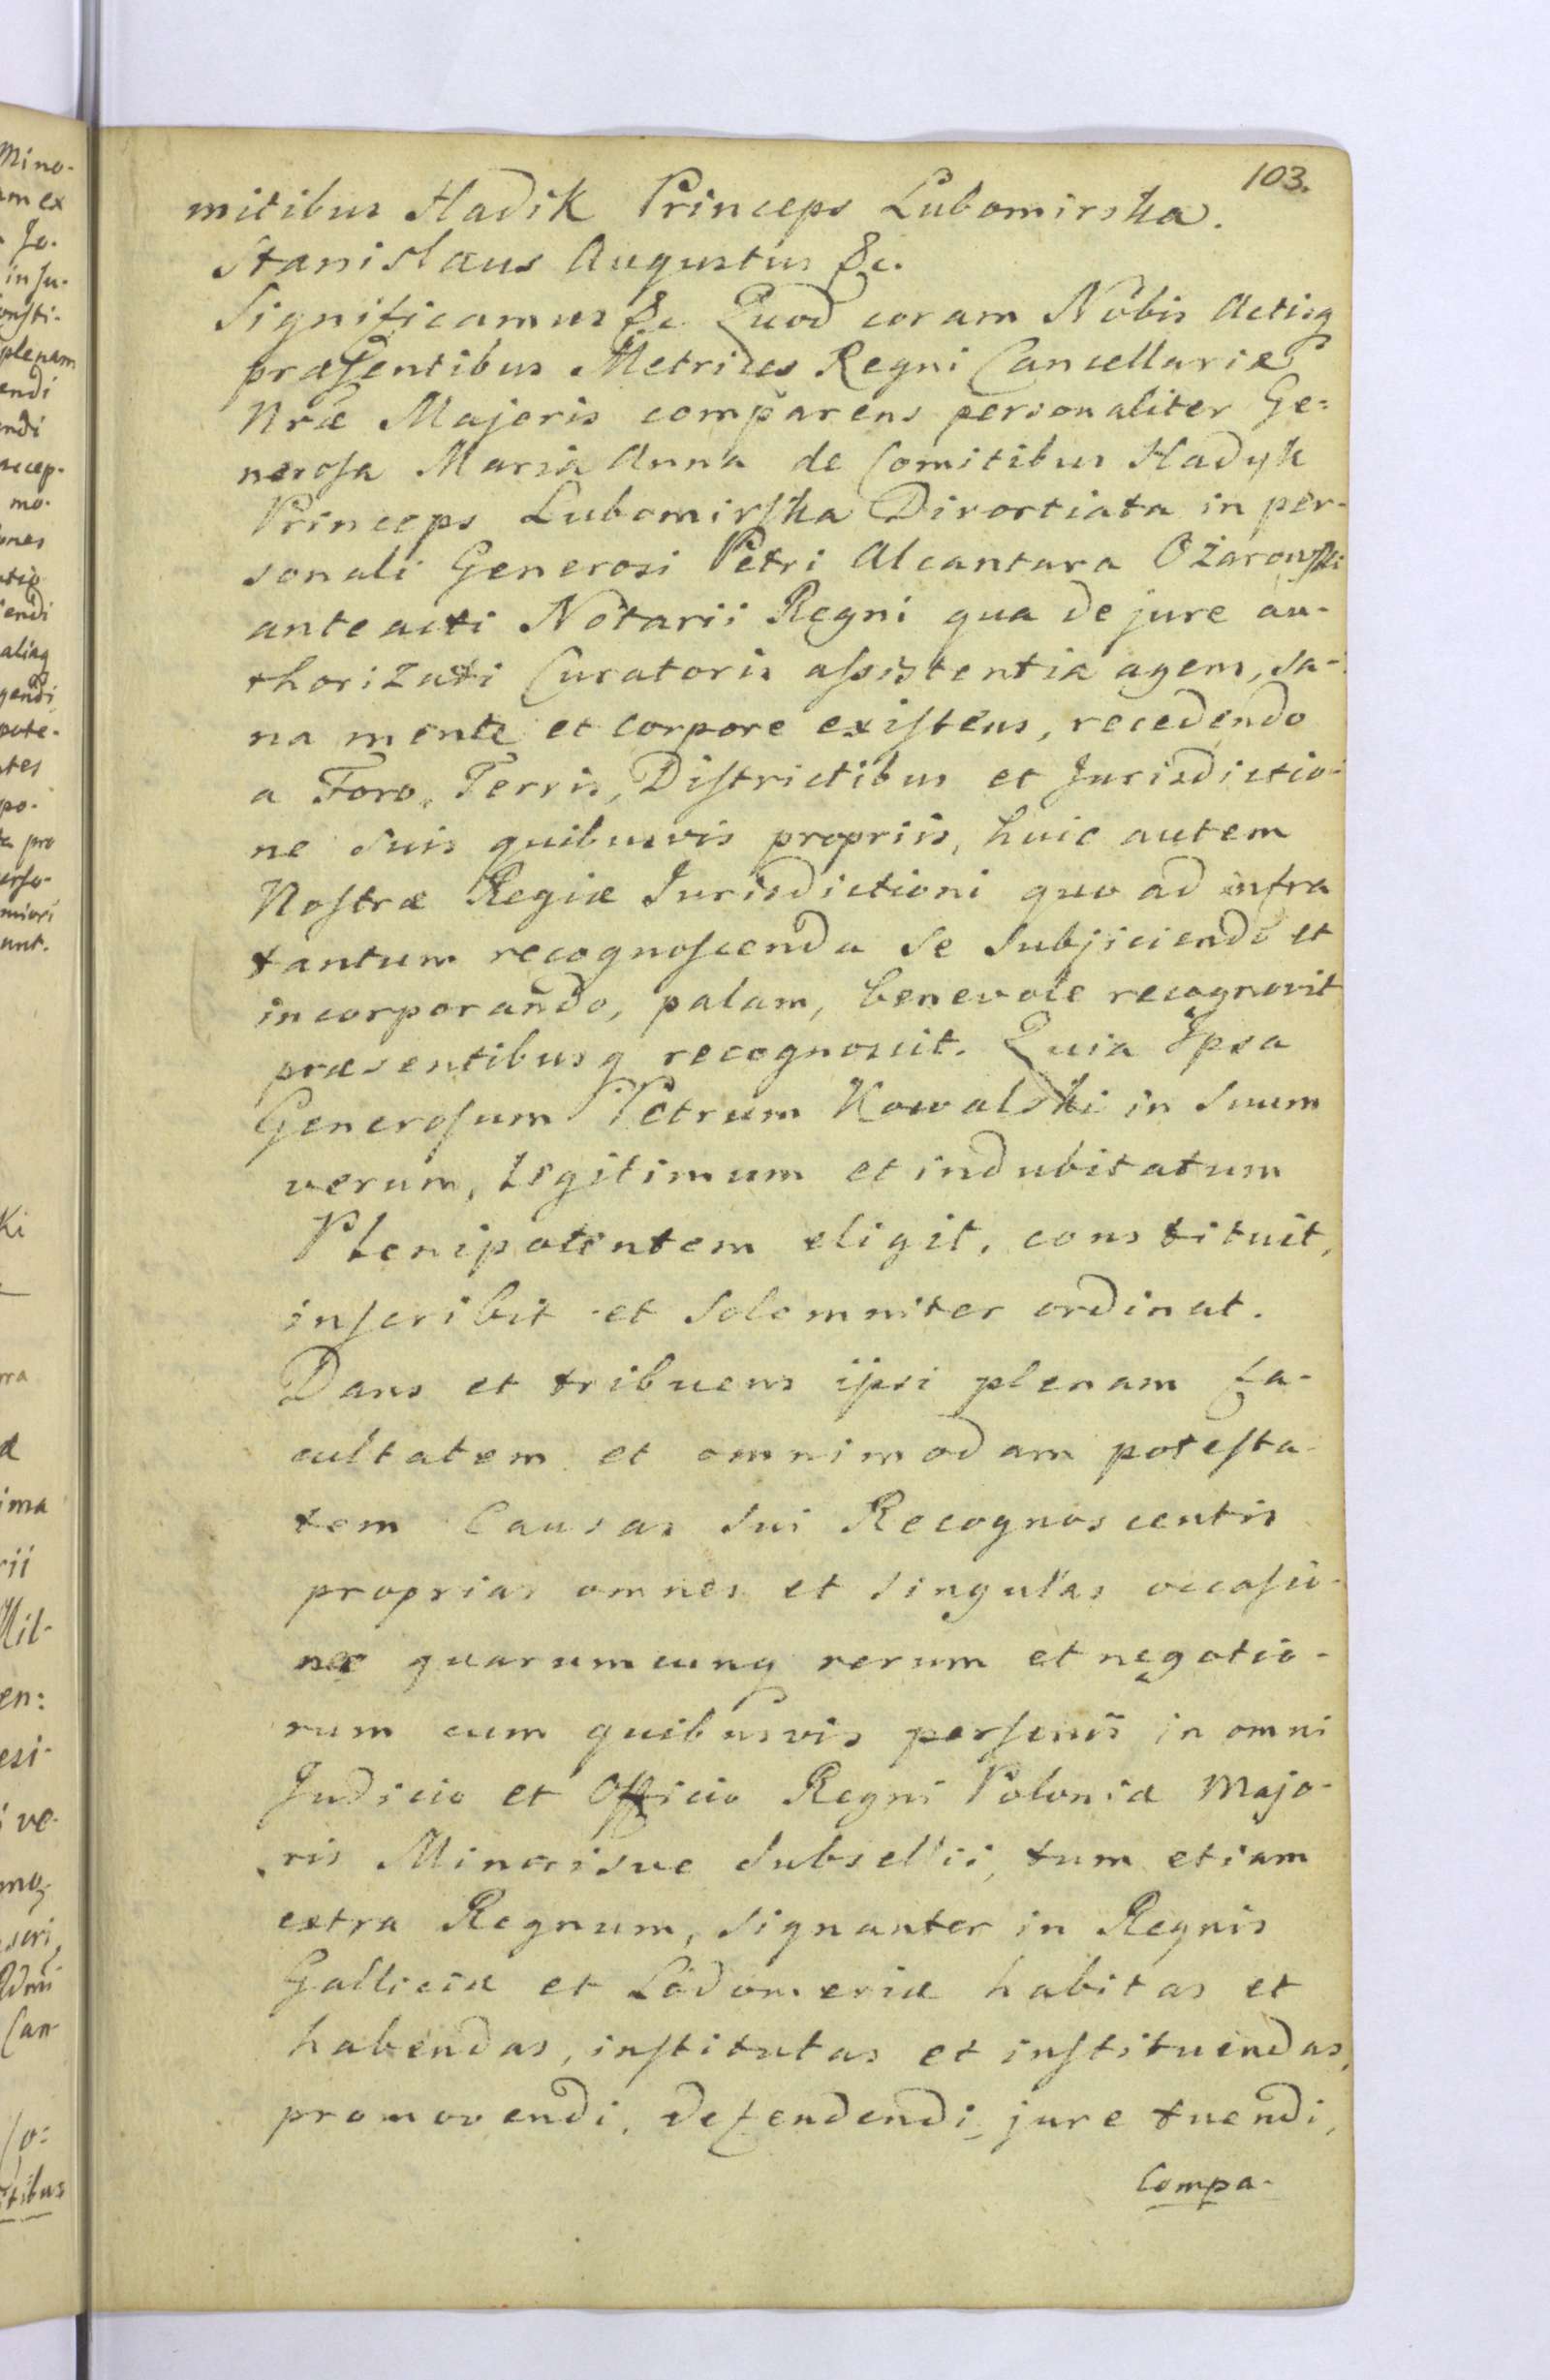 103.
mitibus Hadik Princeps Lubomirska.
Stanislaus Augustus &c.
Significamus &c. Quod coram Nobis Actisq
præsentibus Metrices Regni Cancellariæ
Nræ Majoris comparens personaliter Ge=
nerosa Maria Anna de Comitibus Hadyk
Princeps Lubomirska Divortiata in per-
sonali Generosi Petri Alcantara Ożarowski
ante acti Notarii Regni qua de jure au-
thorizati Curatoris assistentia agens, sa-
na mente et corpore existens, recedendo
a Foro, Terris, Districtibus et Jurisdictio-
ne suis quibusvis propriis, huic autem
Nostræ Regiæ Jurisdictioni quo ad infra
tantum recognoscenda se subjiciendo et
incorporando, palam, benevole recognovit
præsentibusq recognoscit. Quia Ipsa
Generosum Petrum Kowalski in suum
verum, legitimum et indubitatum
Plenipotentem eligit, constituit,
inscribit et solemniter ordinat.
Dans et tribuens ipsi plenam fa-
cultatem et omnimodam potesta-
tem Causas sui Recognoscentis
proprias omnes et singulas occasio-
ne quarumcunq rerum et negotio-
rum cum quibusvis personis in omni
Judicio et Officio Regni Poloniæ Majo-
ris Minorisve Subsellii, tum etiam
extra Regnum, signanter in Regnis
Galliciæ et Lodomeriæ habitas et
habendas, institutas et instituendas,
promovendi, defendendi, jure tuendi,
Compa-
Mino-
am ex
Jo-
in su-
onsti-
plenam
endi
endi
accep-
mo-
ones
endi
aliaq
gendi
pote-
ntes
po-
pro
miori
unt.
Ki
ima
rii
en:
esi-
ve-
Can-
Co=
itibus